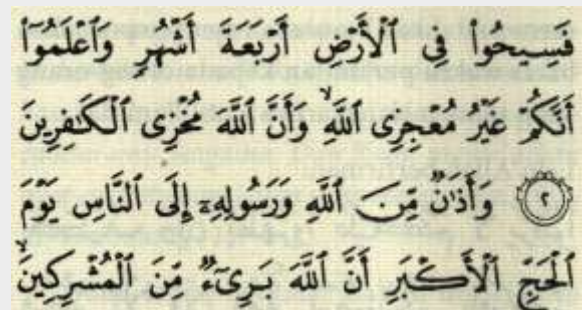 فَسِيحُوا۟ فِى ٱلْأَرْضِ أَرْبَعَةَ أَشْهُرٍ وَٱعْلَمُوٓا۟
أَنَّكُمْ غَيْرُ مُعْجِزِى ٱللَّهِ ۙ وَأَنَّ ٱللَّهَ مُخْزِى ٱلْكَـٰفِرِينَ
٢ وَأَذَٰنٌ مِّنَ ٱللَّهِ وَرَسُولِهِۦٓ إِلَى ٱلنَّاسِ يَوْمَ
ٱلْحَجِّ ٱلْأَكْبَرِ أَنَّ ٱللَّهَ بَرِىٓءٌ مِّنَ ٱلْمُشْرِكِينَ ۙ